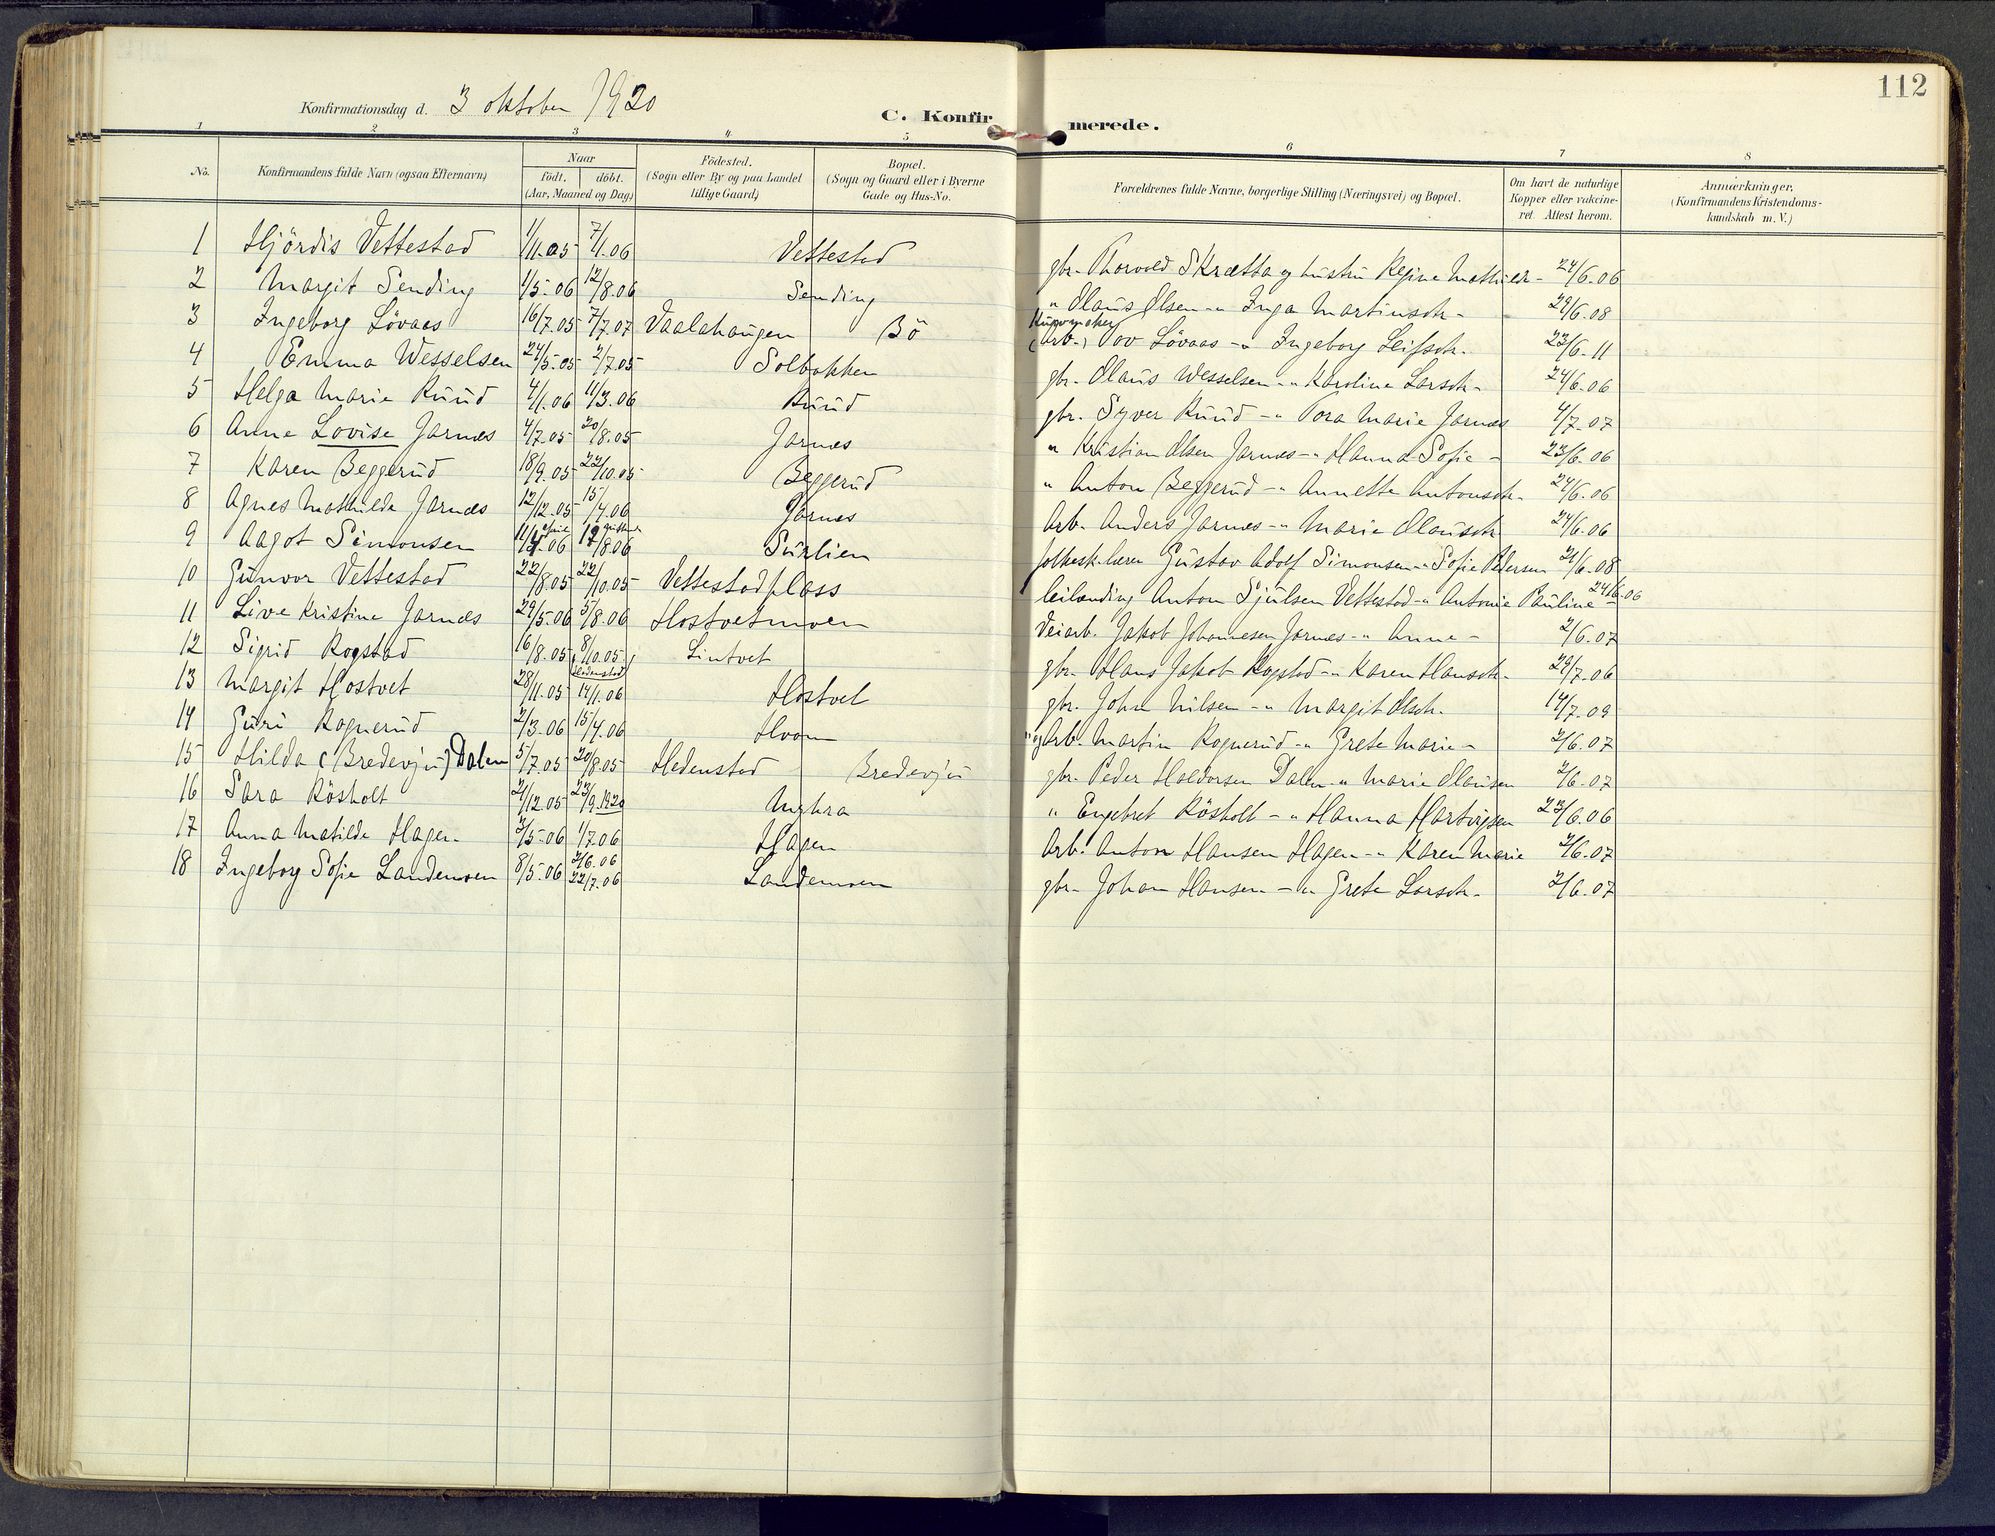 112
Konfirmationsdag d. 3 oktober 1920
C. Konfirmerede.
1 2 3 4 5 6 7 8
No.
Konfirmandens fulde Navn (ogsaa Efternavn)
Naar
födt. döbt.
(Aar, Maaned og Dag)
Födested.
(Sogn eller By og paa Landet
tillige Gaard)
Bopæl.
(Sogn og Gaard eller i Byerne
Gade og Hus-No.
Forældrenes fulde Navne, borgerlige Stilling (Næringsvei) og Bopæl.
Om havt de naturlige
Kopper eller vakcine-
ret. Attest herom.
Anmærkninger.
(Konfirmandens Kristendoms-
kundskab m. V.)
1 Hjördis Vettestad 1/11.05 7/1.06 Vettestad gbr. Thorvald Skrætta og hustru Regine 24/6.06
2 Margit Sending 1/5-06 12/8.06 Sending " Olaus Olsen -"- Inga Martinsdtr. - 29/6.08
3 Ingeborg Lövaas 16/7.05 7/7.07 Vaalahaugen Bö (Arb.) Tov Lövaas -"- Ingeborg Leifsdtr. 23/6.11
4 Emma Wesselsen 24/5.05 2/7.05 Solbakken gbr. Olaus Wesselsen -"- Karoline Larsdtr. 24/6.06
5 Helga Marie Ruud 4/1.06 11/3.06 Ruud gbr. Syver Ruud -"- Tora Marie Jarnæs 4/7.07
6 Anne Lovise Jarnæs 4/7.05 20/8.05 Jarnæs " Kristian Olsen Jarnæs -"- Hanna Sofie - 23/6.06
7 Karen Beggerud 18/9.05 22/10.05 Beggerud " Anton Beggerud -"- Annette Antonsdtr. 24/6.06
8 Agnes Mathilde Jarnæs 12/12.05 15/4.06 Jarnæs Arb. Anders Jarnæs -"- Marie Olausdtr. 24/6.06
9 Aagot Simonsen 11/4.06 april 12/8.06 Surlien folkesk.lærer Gustav Adolf Simonsen -"- Sofie Pedersen 21/6.08
10 Gunvor Vettestad 22/8.05 22/10.05 Vettestadplass leilænding Anton Sjulsen Vettestad -"- Antonie Pauline - 24/6.06
11 Live Kristine Jarnæs 29/5.06 5/8.06 Hostvetmoen Veiarb. Jakob Johannesen Jarnæs -"- Anne - 2/6.07
12 Sigrid Rogstad 16/8.05 8/10.05 Hedenstad Lintvet gbr. Hans Jakob Rogstad -"- Karen Hansdtr. 29/7.06
13 Margit Hostvet 28/11.05 14/1.06 Hostvet gbr. John Nilsen -"- Margit Olsdtr. 14/7.09
14 Guri Rognerud 2/3.06 15/4.06 Hvam Arb. Martin Rognerud -"- Grete Marie - 2/6.07
15 Hilda (Bredevju) Dalen 5/7.05 20/8.05 Hedenstad Bredevju gbr. Peder Haldorsen Dalen -"- Marie Olausen 2/6.07
16 Sara Rösholt 21/12.05 23/9.1920 Myhra " Engebret Rösholt -"- Hanna Hartvigsen 23/6.06
17 Anna Matilde Hagen 3/5.06 1/7.06 Hagen Arb. Anton Hansen Hagen -"- Karen Marie 2/6.07
18 Ingeborg Sofie Landemoen 8/5.06 3/6.06 22/7.06 Landemoen gbr. Johan Hansen -"- Grete Larsdtr. 2/6.07